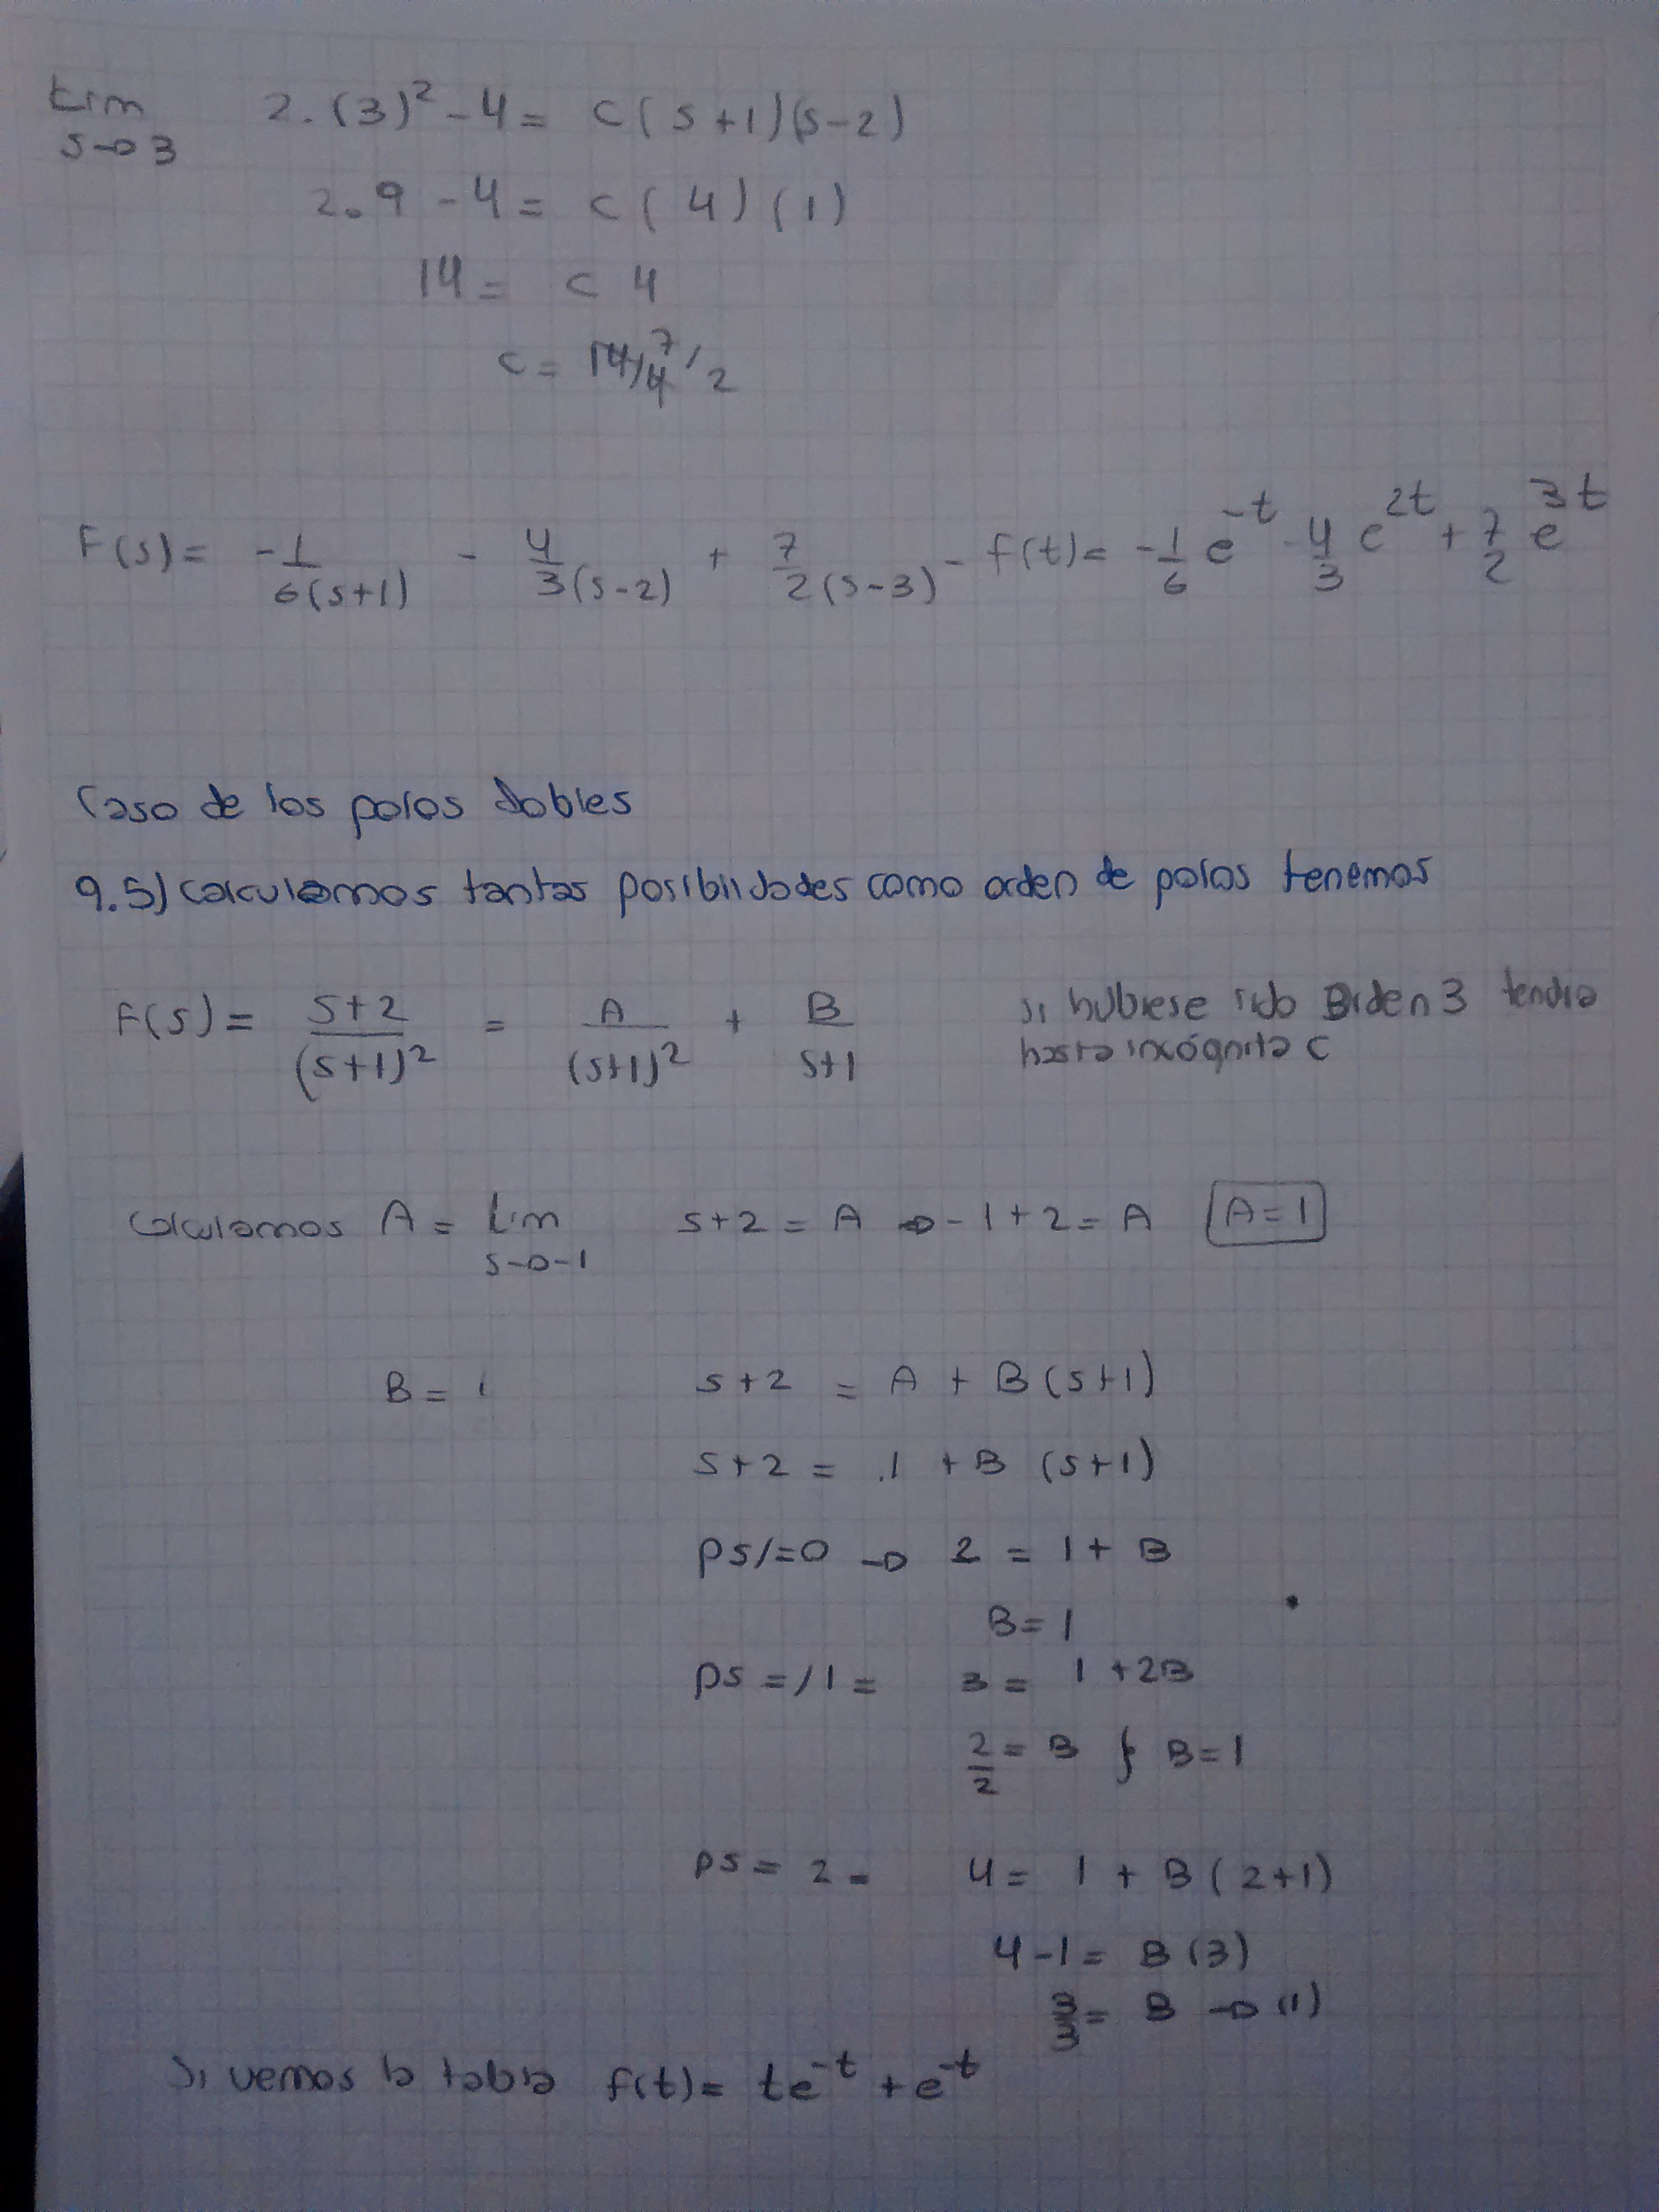 Lim 2.(3)² - 4 = C(s+1)(s-2)
s→3
2.9 - 4 = C(4)(1)
14 = C 4
C = 14/4 7/2
F(s) = -1/6(s+1) - 4/3(s-2) + 7/2(s-3) - f(t) = -1/6 e^-t - 4/3 e^2t + 7/2 e^3t
Caso de los polos dobles
9.5) Calculamos tantas posibilidades como orden de polos tenemos
F(s) = s+2/(s+1)² = A/(s+1)² + B/s+1 si hubiese sido Orden 3 tendria
hasta incógnita C
Calculamos A = Lim s+2 = A → -1+2 = A A=1
s→-1
B = 1 s+2 = A + B(s+1)
s+2 = 1 + B (s+1)
ps/=0 → 2 = 1 + B
B = 1
ps =/1 = 3 = 1 + 2B
2/2 = B } B = 1
ps = 2 - 4 = 1 + B(2+1)
4 - 1 = B(3)
3/3 = B → (1)
Si vemos la tabla f(t) = te^-t + e^-t